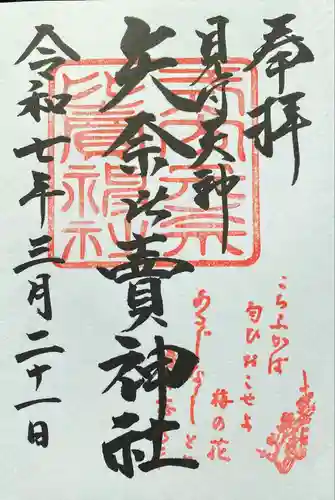 奉拝
見付天神
矢奈比賣神社
令和七年三月二十一日
矢奈比賣神社
こちふかば
匂ひおこせよ
梅の花
あるじなしとて